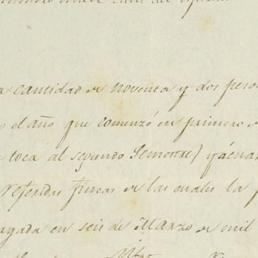 a cantidad de noventa y dos pesos
o el año que comenzó en primero
e toca al segundo Semestre)
referidas fincas de las cuales la
agada en seis de Marzo de mil